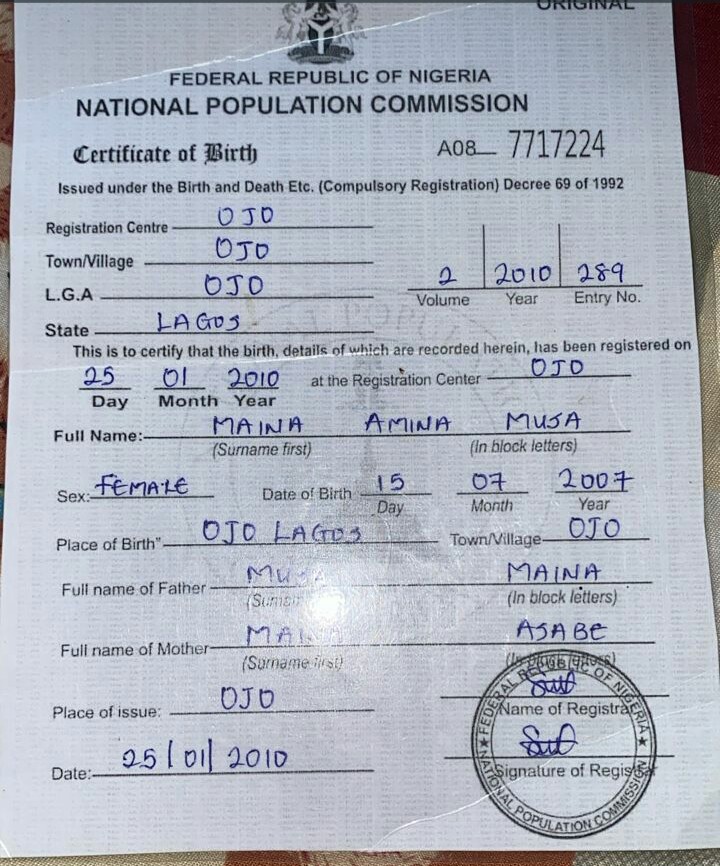 ORIGINAL
FEDERAL REPUBLIC OF NIGERIA
NATIONAL POPULATION COMMISSION
Certificate of Birth A08 7717224
Issued under the Birth and Death Etc. (Compulsory Registration) Decree 69 of 1992
Registration Centre OJO
Town/Village OJO
L.G.A OJO
2 2010 289
Volume Year Entry No.
State LAGOS
This is to certify that the birth, details of which are recorded herein, has been registered on
25 01 2010 at the Registration Center OJO
Day Month Year
Full Name:- MAINA AMINA MUSA
(Surname first) (In block letters)
Sex: FEMALE Date of Birth 15 07 2007
Day Month Year
Place of Birth" OJO LAGOS Town/Village OJO
Full name of Father MUSA MAINA
(In block letters)
Full name of Mother ASABE
(Surname first)
Place of issue: OJO
Name of Registrar
Date:- 25/01/2010
Signature of Registrar
FEDERAL REPUBLIC OF NIGERIA
NATIONAL POPULATION COMMISSION